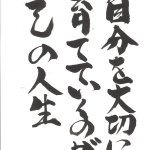 自分を大切に
育てていくのが
己の人生